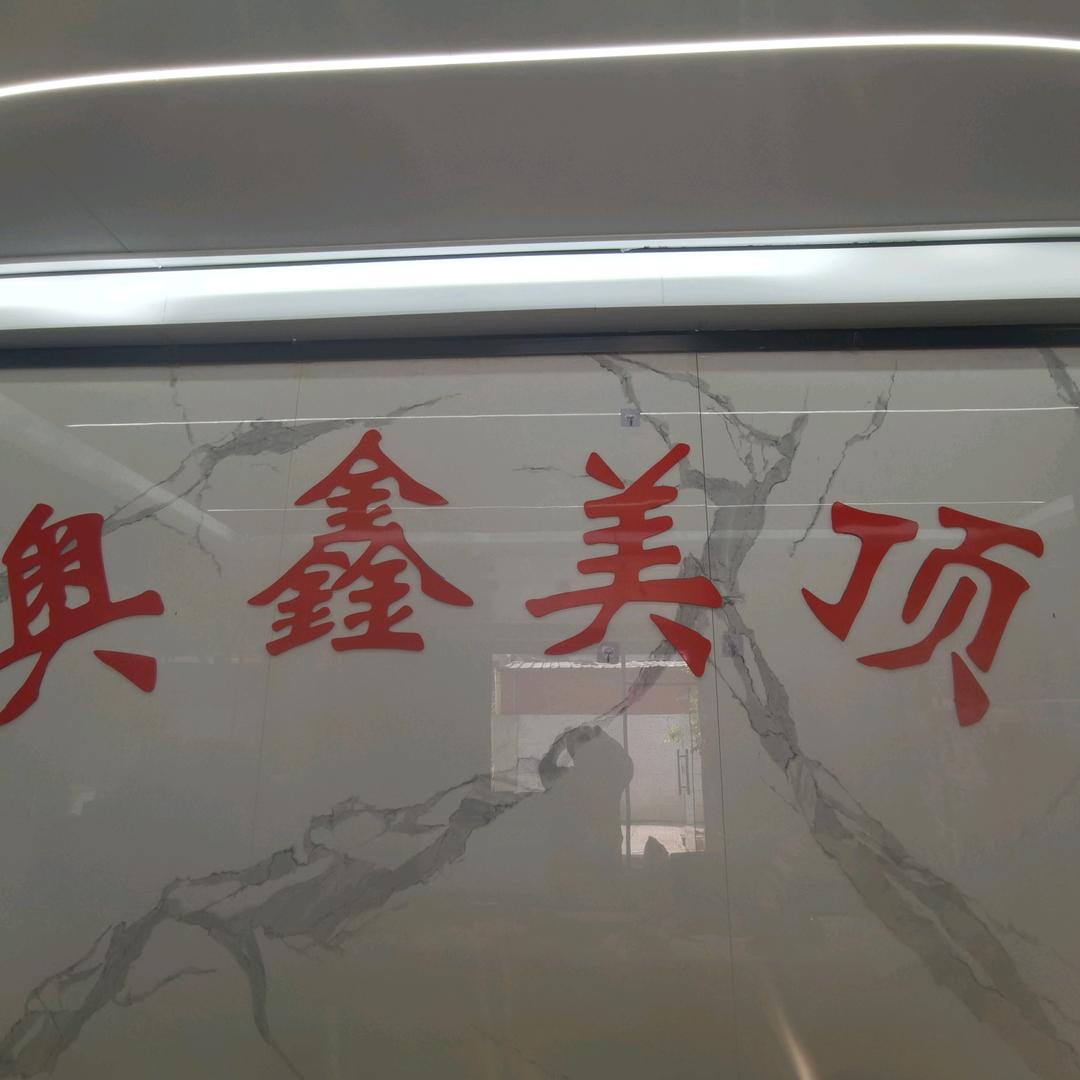 奥鑫美顶